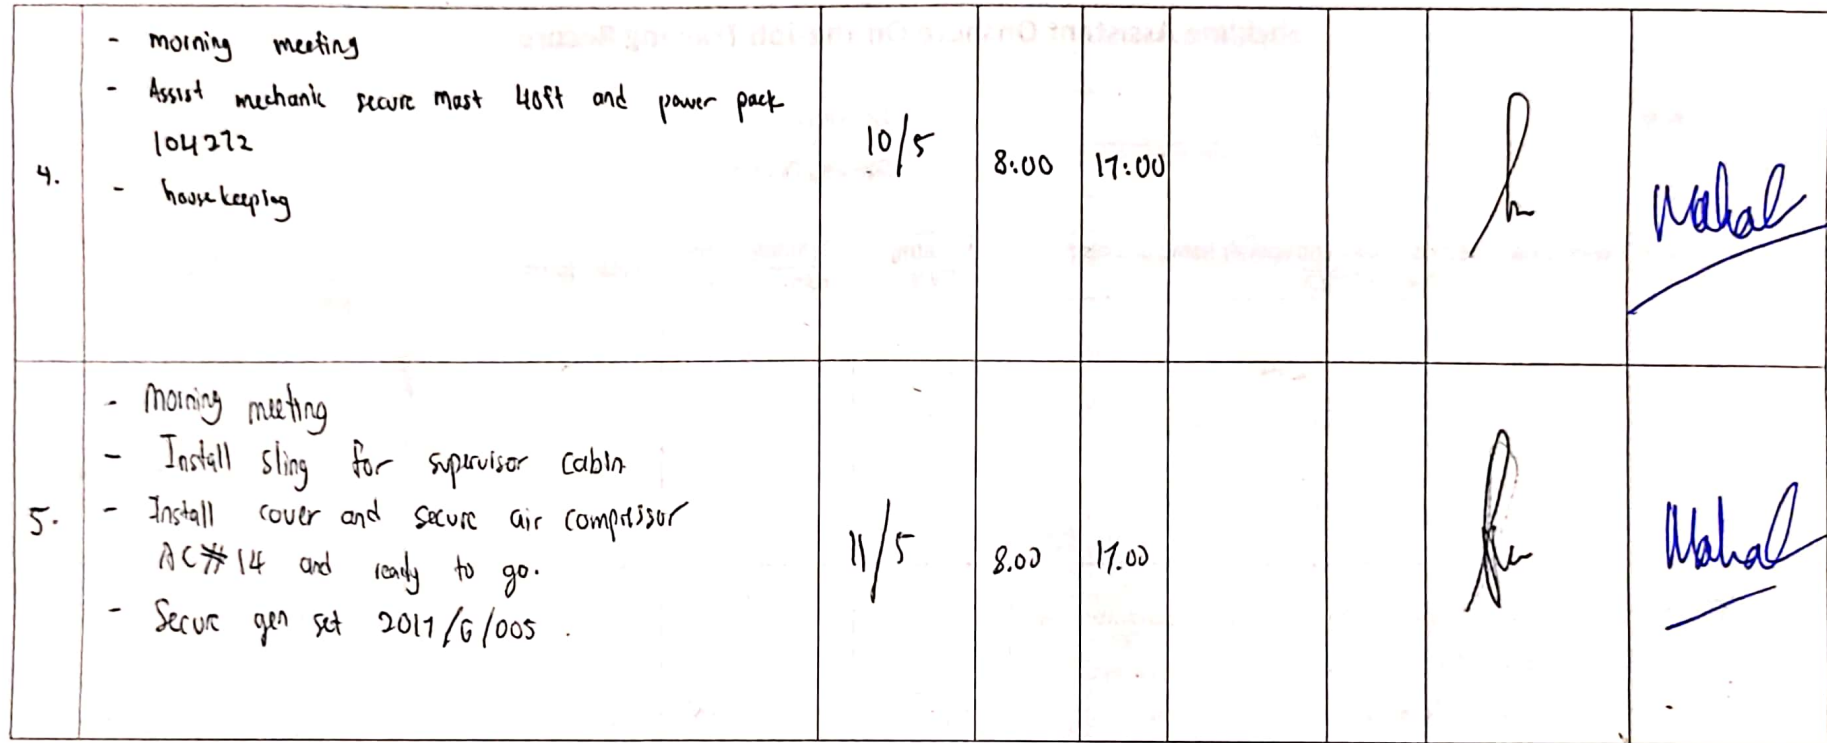 - morning meeting
- Assist mechanic secure mast 40ft and power pack
104272
- housekeeping
4.
10/5
8:00
17:00
- Morning meeting
- Install sling for supervisor cabin
- Install cover and secure air compressor
AC#14 and ready to go.
- Secure gen set 2017/G/005.
5.
11/5
8.00
17.00